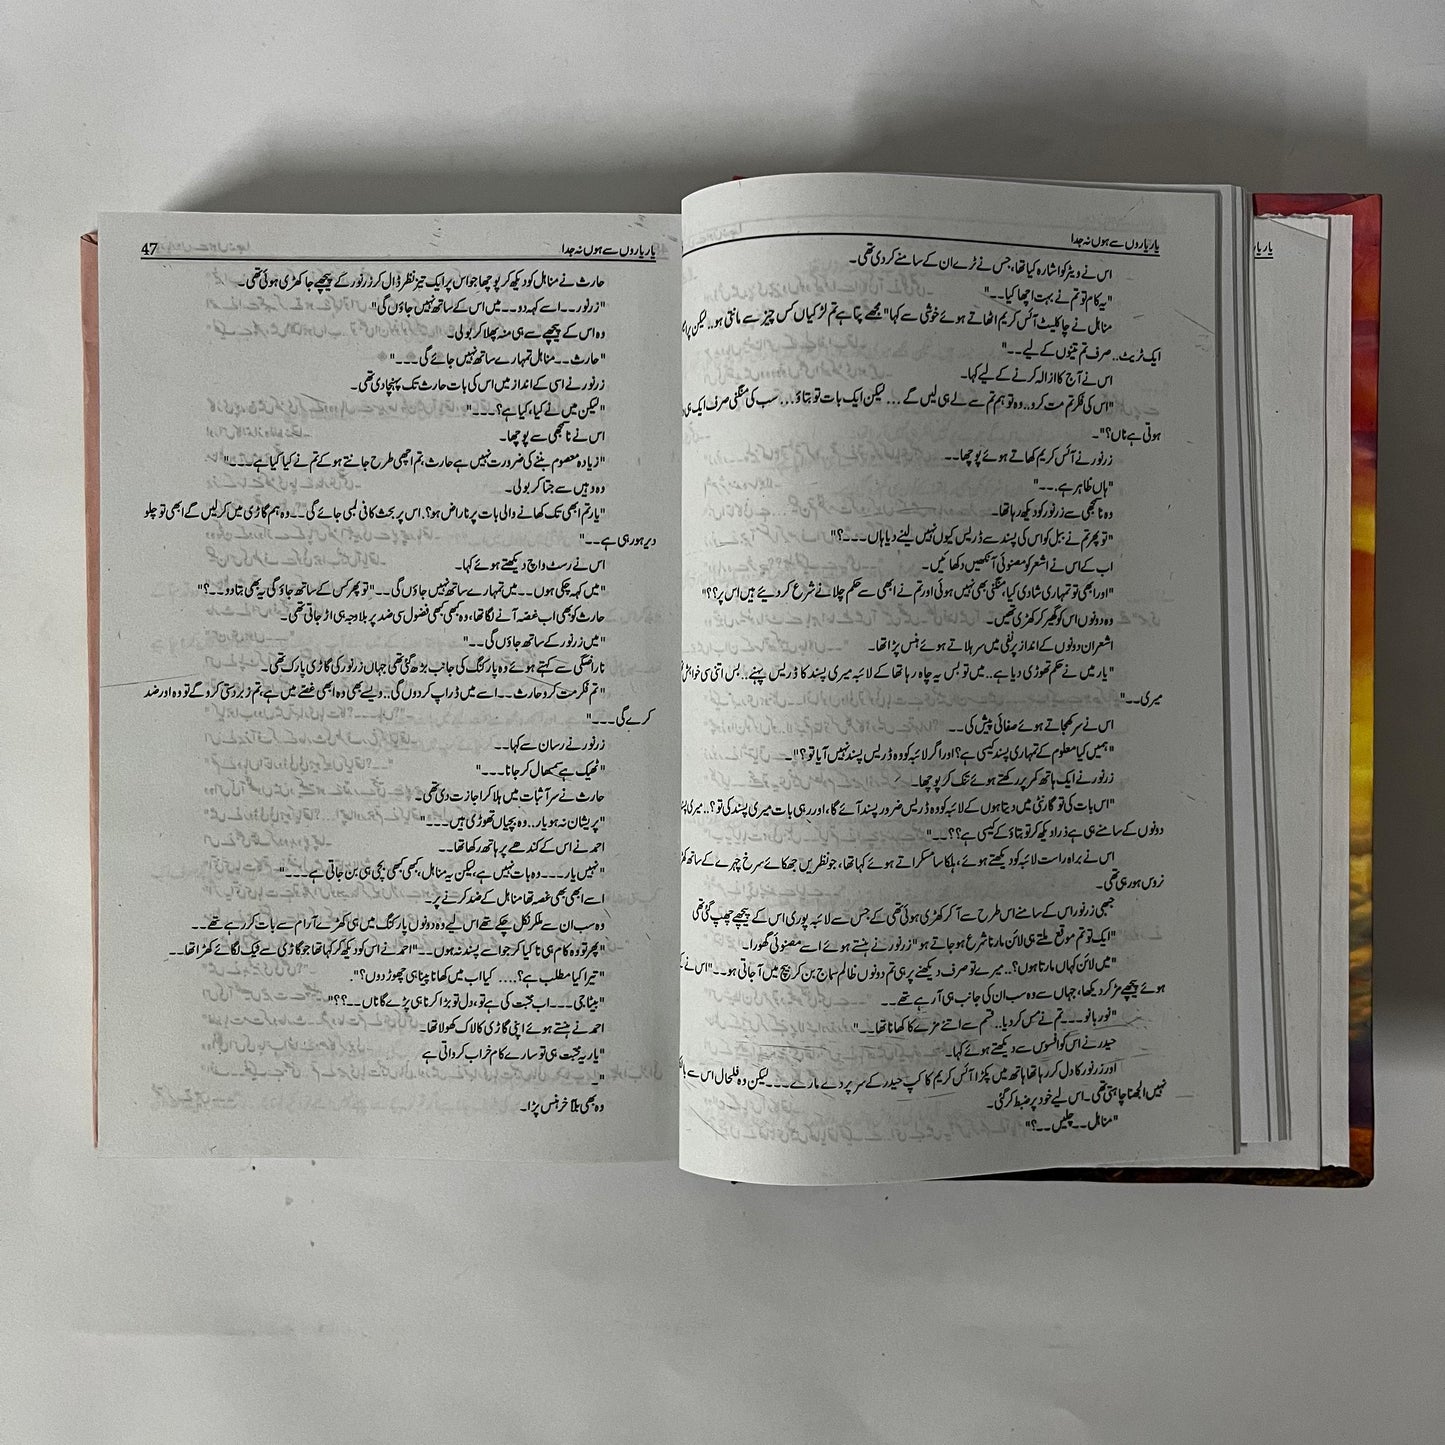 یار یاروں سے ہوں نہ جدا
اس نے ویٹر کو اشارہ کیا تھا، جس نے ٹرے ان کے سامنے کر دی تھی۔
"یہ کام تو تم نے بہت اچھا کیا۔۔"
مناہل نے چاکلیٹ آئس کریم اٹھاتے ہوئے خوشی سے کہا "مجھے پتا ہے تم لڑکیاں کس چیز سے مانتی ہو۔۔ لیکن
ایک ٹریٹ۔۔ صرف تم تینوں کے لیے۔۔"
اس نے آج کا ازالہ کرنے کے لیے کہا۔
"اس کی فکر تم مت کرو۔۔ وہ تو ہم تم سے لے ہی لیں گے ۔۔۔ لیکن ایک بات تو بتاؤ۔۔۔ سب کی منگنی صرف ایک ہی
ہوتی ہے ناں؟"۔
زرنور نے آئس کریم کھاتے ہوئے پوچھا۔۔
"ہاں ظاہر ہے۔۔۔"
وہ نا سمجھی سے زرنور کو دیکھ رہا تھا۔
"تو پھر تم نے ببل کو اس کی پسند سے ڈریس کیوں نہیں لینے دیا ہاں۔۔۔؟"
اب کے اس نے اشعر کو مصنوئی آنکھیں دکھائیں۔
"اور ابھی تو تمہاری شادی کیا، منگنی بھی نہیں ہوئی اور تم نے ابھی سے حکم چلانے شرع کر دیئے ہیں اس پر؟؟"
وہ دونوں اس کو گھیر کر کھڑی تھیں۔
اشعر ان دونوں کے انداز پر نفی میں سر ہلاتے ہوئے ہنس پڑا تھا۔
"یار میں نے حکم تھوڑی دیا ہے۔۔ میں تو بس یہ چاہ رہا تھا کے لائبہ میری پسند کا ڈریس پہنے۔۔ بس اتنی سی خواہش
میری۔۔"
اس نے سر کھجاتے ہوئے صفائی پیش کی۔۔
"ہمیں کیا معلوم کے تمہاری پسند کیسی ہے؟ اور اگر لائبہ کو وہ ڈریس پسند نہیں آیا تو؟"۔
زرنور نے ایک ہاتھ کمر پر رکھتے ہوئے تنک کر پوچھا۔
"اس بات کی تو گارنٹی میں دیتا ہوں کے لائبہ کو وہ ڈریس ضرور پسند آئے گا، اور رہی بات میری پسند کی تو؟۔۔ میری
دونوں کے سامنے ہی ہے ذرا دیکھ کر تو بتاؤ کے کیسی ہے؟؟۔۔"
اس نے براہ راست لائبہ کو دیکھتے ہوئے، ہلکا سا مسکراتے ہوئے کہا تھا، جو نظریں جھکائے سرخ چہرے کے ساتھ
نروس ہو رہی تھی۔
جبھی زرنور اس کے سامنے اس طرح سے آ کر کھڑی ہوئی تھی کے جس سے لائبہ پوری اس کے پیچھے چھپ گئی تھی
"ایک تو تم موقع ملتے ہی لائن مارنا شرع ہو جاتے ہو" زرنور نے ہنستے ہوئے اسے مصنوئی گھورا۔
"میں لائن کہاں مارتا ہوں؟۔۔ میرے تو صرف دیکھنے پر ہی تم دونوں ظالم سماج بن کر بیچ میں آ جاتی ہو۔۔" اس نے
ہوئے پیچھے مڑ کر دیکھا، جہاں سے وہ سب ان کی جانب ہی آ رہے تھے۔۔
"نور بانو۔۔۔ تم نے مس کر دیا۔۔ قسم سے اتنے مزے کا کھانا تھا۔۔"
حیدر نے اس کو افسوس سے دیکھتے ہوئے کہا۔
اور زرنور کا دل کر رہا تھا ہاتھ میں پکڑا آئس کریم کا کپ حیدر کے سر پر دے مارے۔۔۔ لیکن وہ فلحال اس سے
نہیں الجھنا چاہتی تھی۔ اس لیے خود پر ضبط کر گئی۔
"مناہل۔۔ چلیں۔۔؟"
یار یاروں سے ہوں نہ جدا 47
حارث نے مناہل کو دیکھ کر پوچھا جو اس پر ایک تیز نظر ڈال کر زرنور کے پیچھے جا کھڑی ہوئی تھی۔
"زرنور۔۔ اسے کہہ دو۔۔ میں اس کے ساتھ نہیں جاؤں گی"
وہ اس کے پیچھے سے ہی منہ پھلا کر بولی۔
"حارث۔۔ مناہل تمہارے ساتھ نہیں جائے گی۔۔۔"
زرنور نے اسی کے انداز میں اس کی بات حارث تک پہنچا دی تھی۔
"لیکن میں نے کیا، کیا ہے؟۔۔۔"
اس نے نا سمجھی سے پوچھا۔
"زیادہ معصوم بننے کی ضرورت نہیں ہے حارث، تم اچھی طرح جانتے ہو کے تم نے کیا کیا ہے۔۔۔"
وہ وہیں سے جتا کر بولی۔
"یار تم ابھی تک کھانے والی بات پر ناراض ہو؟۔ اس پر بحث کافی لمبی جائے گی۔۔ وہ ہم گاڑی میں کر لیں گے ابھی تو چلو
دیر ہو رہی ہے۔۔"
اس نے رسٹ واچ دیکھتے ہوئے کہا۔
"میں کہہ چکی ہوں۔۔ میں تمہارے ساتھ نہیں جاؤں گی۔۔" "تو پھر کس کے ساتھ جاؤ گی یہ بھی بتا دو۔۔؟"
حارث کو بھی اب غصہ آنے لگا تھا، وہ کبھی کبھی فضول سی ضد پر بلاوجہ ہی اڑ جاتی تھی۔
"میں زرنور کے ساتھ جاؤں گی۔۔"
ناراضگی سے کہتے ہوئے وہ پارکنگ کی جانب بڑھ گئی تھی جہاں زرنور کی گاڑی پارک تھی۔
"تم فکر مت کرو حارث۔۔ اسے میں ڈراپ کر دوں گی۔۔ ویسے بھی وہ ابھی غصے میں ہے، تم زبردستی کرو گے تو وہ اور ضد
کرے گی۔۔۔"
زرنور نے رسان سے کہا۔۔
"ٹھیک ہے سمبھال کر جانا۔۔۔"
حارث نے سر اثبات میں ہلا کر اجازت دی تھی۔
"پریشان نہ ہو یار۔۔ وہ بچیاں تھوڑی ہیں۔۔۔"
احمد نے اس کے کندھے پر ہاتھ رکھا تھا۔۔
"نہیں یار۔۔۔ وہ بات نہیں ہے، لیکن یہ مناہل، کبھی کبھی بچی ہی بن جاتی ہے۔۔۔"
اسے ابھی بھی غصہ تھا مناہل کے ضد کرنے پر۔
وہ سب ان سے ملکر نکل چکے تھے اس لیے وہ دونوں پارکنگ میں ہی کھڑے آرام سے بات کر رہے تھے۔۔
"پھر تو وہ کام ہی نا کیا کر جو اسے پسند نہ ہوں۔۔" احمد نے اس کو دیکھ کر کہا تھا جو گاڑی سے ٹیک لگائے کھڑا تھا۔۔
"تیرا کیا مطلب ہے؟۔۔۔۔ کیا اب میں کھانا پینا ہی چھوڑ دوں؟"۔
"بیٹا جی۔۔۔ اب محبت کی ہے تو، دل تو بڑا کرنا ہی پڑے گا ناں۔۔؟؟"
احمد نے ہنستے ہوئے اپنی گاڑی کا لاک کھولا تھا۔
"یار یہ محبت ہی تو سارے کام خراب کرواتی ہے
"۔
وہ بھی بلآخر ہنس پڑا۔